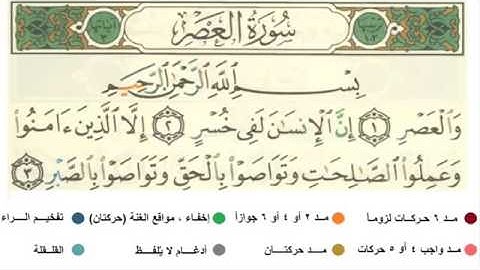 سُورَةُ العَصْرِ
بِسْمِ اللَّهِ الرَّحْمَٰنِ الرَّحِيمِ
وَالْعَصْرِ ﴿١﴾ إِنَّ الْإِنسَانَ لَفِي خُسْرٍ ﴿٢﴾ إِلَّا الَّذِينَ ءَامَنُوا
وَعَمِلُوا الصَّالِحَاتِ وَتَوَاصَوْا بِالْحَقِّ وَتَوَاصَوْا بِالصَّبْرِ ﴿٣﴾
مد ٦ حركات لزوماً مد ٢ أو ٤ أو ٦ جوازاً إخفاء ، مواقع الغنة (حركتان) تفخيم الراء
مد واجب ٤ أو ٥ حركات مد حركتان أدغام لا يُلفظ القلقلة